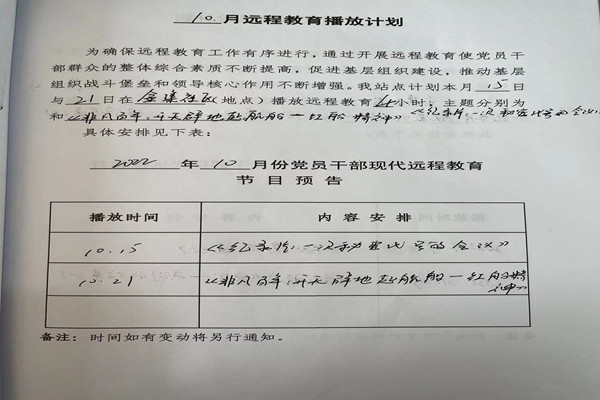 10.月远程教育播放计划
为确保远程教育工作有序进行，通过开展远程教育使党员干
部群众的整体综合素质不断提高，促进基层组织建设，推动基层
组织战斗堡垒和领导核心作用不断增强。我站点计划本月 15 日
与 21 日在（地点）播放远程教育小时，主题分别为
和《非凡百年：开天辟地起航船—红船精神》《纪录片：一次秘密代号的会议》
具体安排见下表：
2022 年 10 月份党员干部现代远程教育
节目预告
播放时间 内容安排
10.15 《纪录片：一次秘密代号的会议》
10.21 《非凡百年：开天辟地起航船—红船精神》
备注：时间如有变动将另行通知。